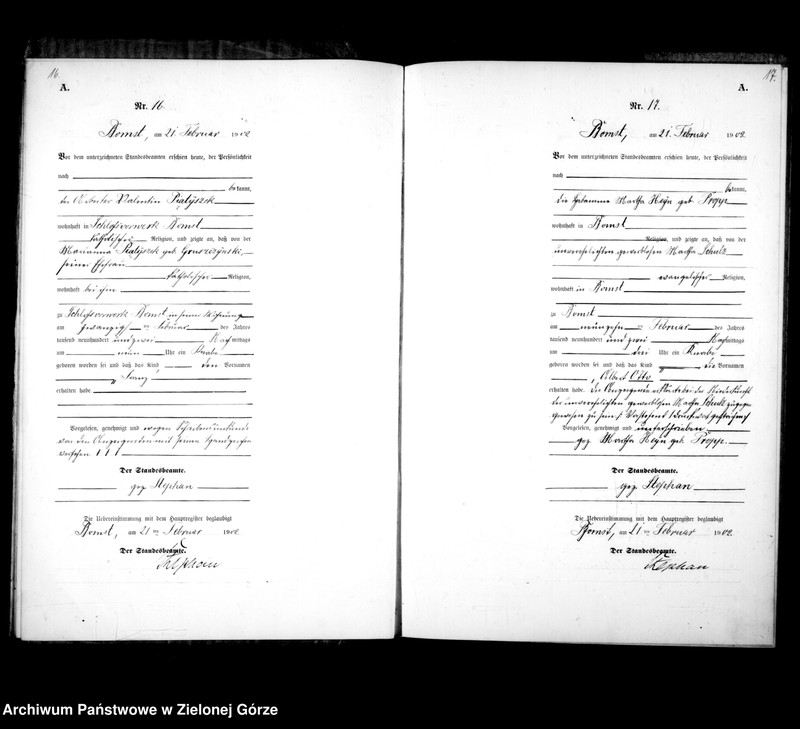 16.
A.
Nr. 16
Bomst, am 21 Februar 1902
Vor dem unterzeichneten Standesbeamten erschien heute, der Persönlichkeit
nach
bekannt,
der Arbeiter Valentin
wohnhaft in Schloßvorwerk Bomst
katholischer Religion, und zeigte an, daß von der
Marianna geb.
seiner Ehefrau
katholischer Religion,
wohnhaft bei ihm
zu Schloßvorwerk Bomst in seiner Wohnung
am zwanzigsten Februar des Jahres
tausend neunhundert und zwei Nachmittags
um neun Uhr ein Knabe
geboren worden sei und daß das Kind den Vornamen
Franz
erhalten habe
Vorgelesen, genehmigt und wegen Schreibensunkunde
von dem Anzeigenden mit seinem Handzeichen
versehen † † †
Der Standesbeamte.
gez Stephan
Die Uebereinstimmung mit dem Hauptregister beglaubigt
Bomst, am 21 ten Februar 1902
Der Standesbeamte.
Stephan
17.
A.
Nr. 17.
Bomst, am 21. Februar 1902.
Vor dem unterzeichneten Standesbeamten erschien heute, der Persönlichkeit
nach
bekannt,
die Hebamme Martha Heyn geb. Propp
wohnhaft in Bomst
Religion, und zeigte an, daß von der
unverehelichten gewerblosen Martha Schulz
evangelischer Religion,
wohnhaft in Bomst
zu Bomst
am neunzehn ten Februar des Jahres
tausend neunhundert und zwei Nachmittags
um drei Uhr ein Knabe
geboren worden sei und daß das Kind die Vornamen
Albert Otto
erhalten habe. Die Anzeigende erklärte bei der Niederkunft
der unverehelichten gewerblosen Martha Schulz zugegen
gewesen zu sein. Vorstehend 1 Druckwort gestrichen
Vorgelesen, genehmigt und unterschrieben
gez Martha Heyn geb. Propp.
Der Standesbeamte.
gez Stephan
Die Uebereinstimmung mit dem Hauptregister beglaubigt
Bomst, am 21 ten Februar 1902
Der Standesbeamte.
Stephan
Archiwum Państwowe w Zielonej Górze